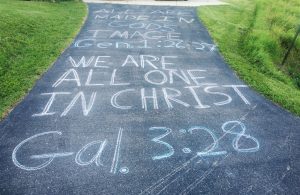 MADE IN
GOD
IMAGE
Gen. 1:26-27
WE ARE
ALL ONE
IN CHRIST
Gal. 3:28